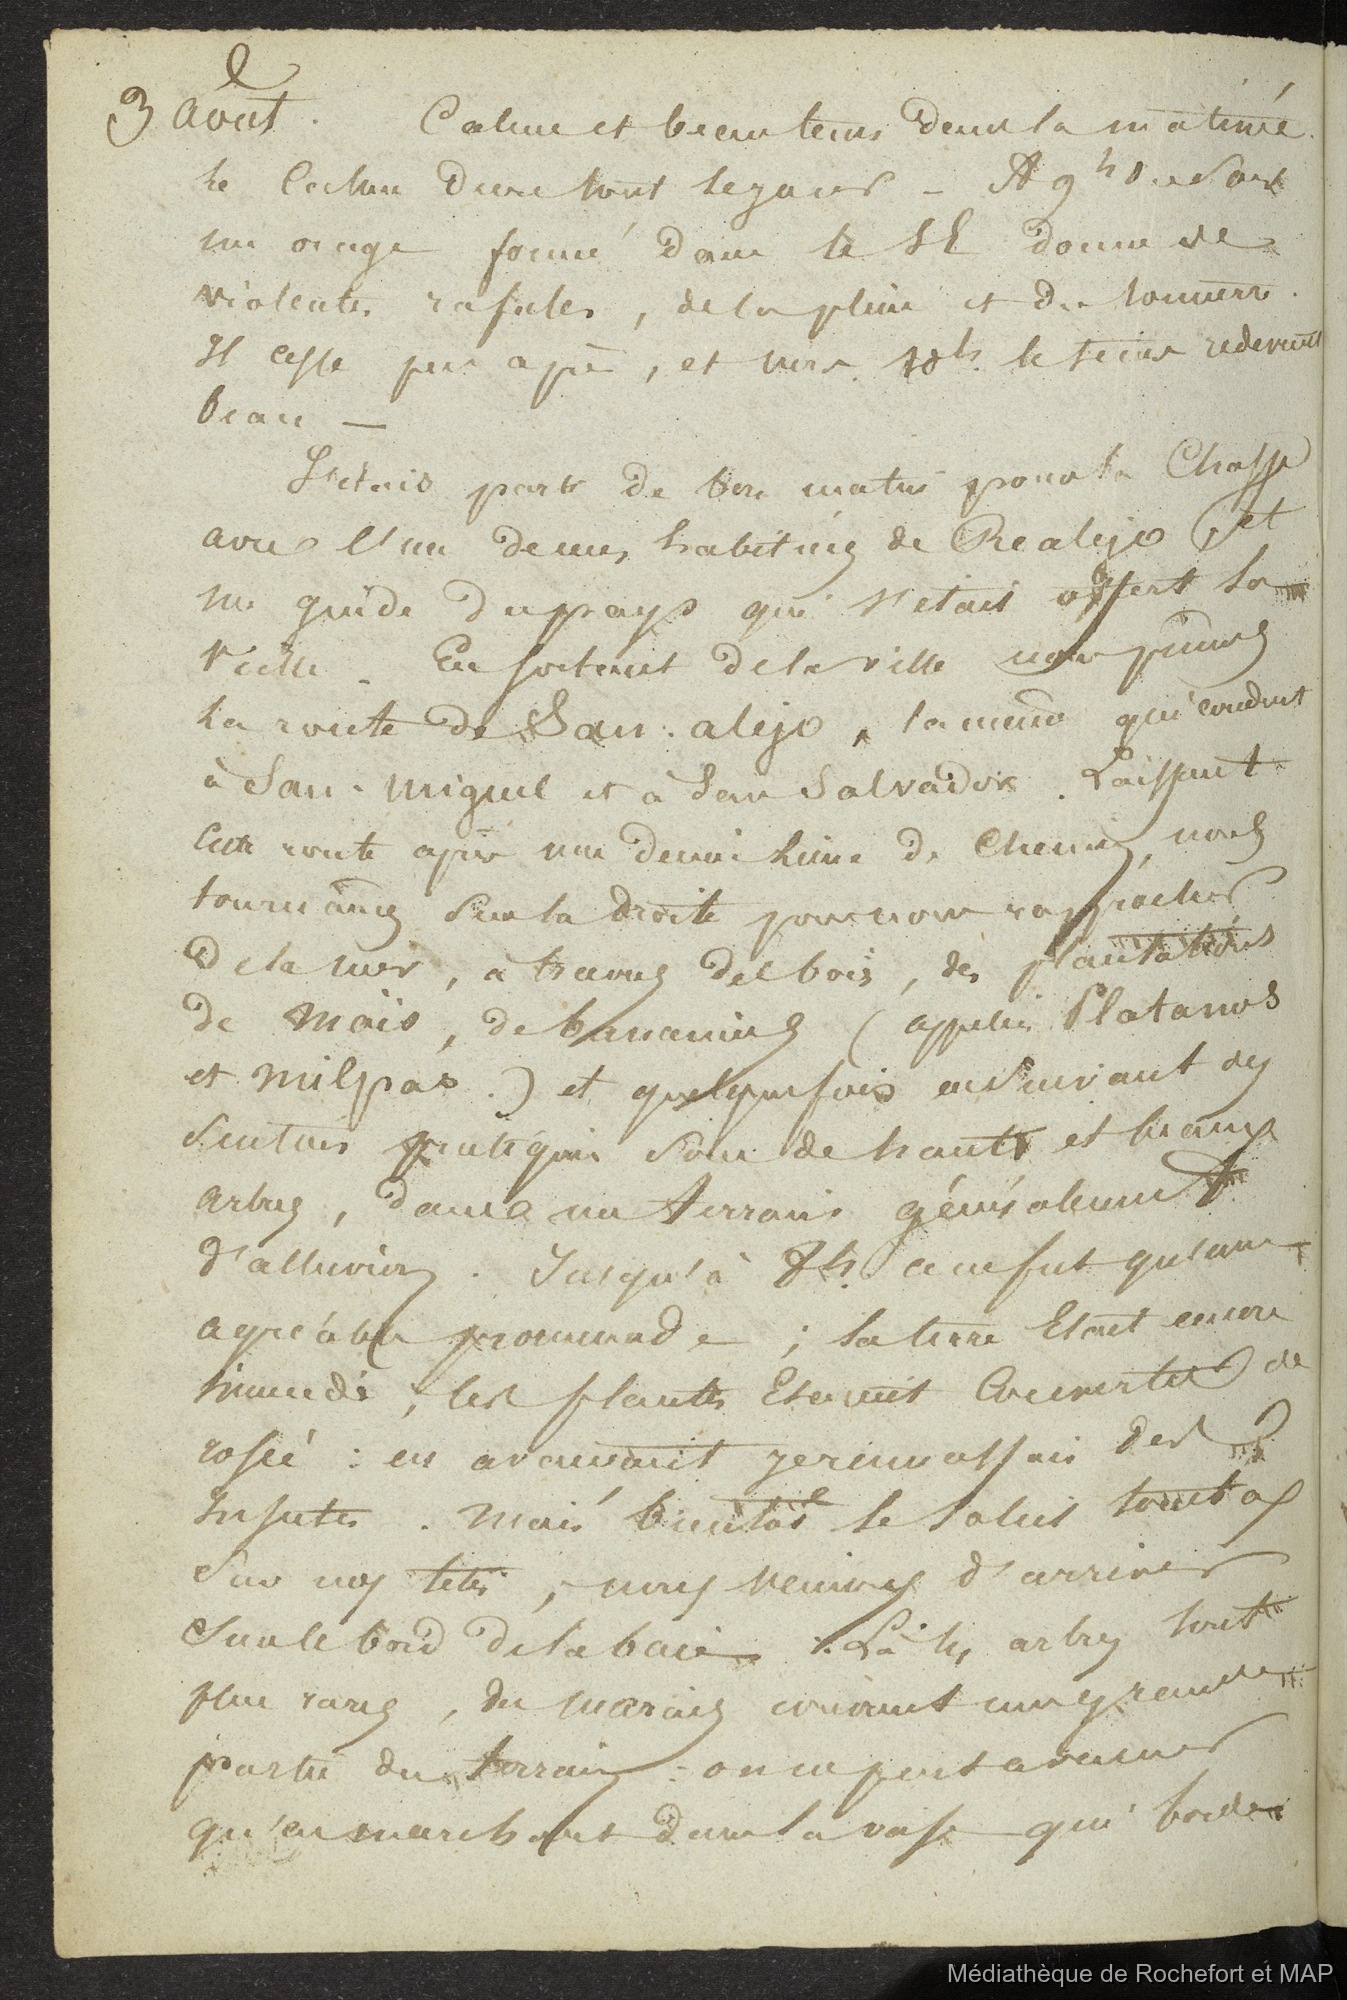 3 août. Calme et beau tems dans la matinée.
le calme dure tout le jour – A 9h du soir
un orage formé dans le SE donne de
violentes rafales, de la pluie et du tonnerre.
Il cesse peu après, et vers 10h. le tems redevient
beau —
J'étais parti de bon matin pour la Chasse
avec l'un de mes habitués de Realejo, et
un guide du pays qui s'était offert la
veille. En sortant de la ville nous primes
la route de San. alejo, la même qui conduit
à San. Miguel et à San Salvador. Laissant
cette route après une demi heure de Chemin, nous
tournâmes sur la droite pour nous rapprocher
de la mer, à travers des bois, des plantations
de Maïs, de bananiers (appelés Platanos
et milpas.) et quelquefois en suivant des
sentiers pratiqués sous de hauts et beaux
arbres, dans un terrain généralement
d'alluvion. Jusqu'à 8h. ce ne fut qu'une
agréable promenade; la terre Etait encore
humide, les plantes Etaient Couvertes de
rosée: en avançant je ramassais des
Insectes. Mais bientôt le soleil tomba
sur nos têtes, nous venions d'arriver
sur le bord de la baie. Là les arbres sont
plus rares, des marais couvrent une grande
partie du terrain: on ne peut avancer
qu'en marchant dans la vase qui borde
Médiathèque de Rochefort et MAP